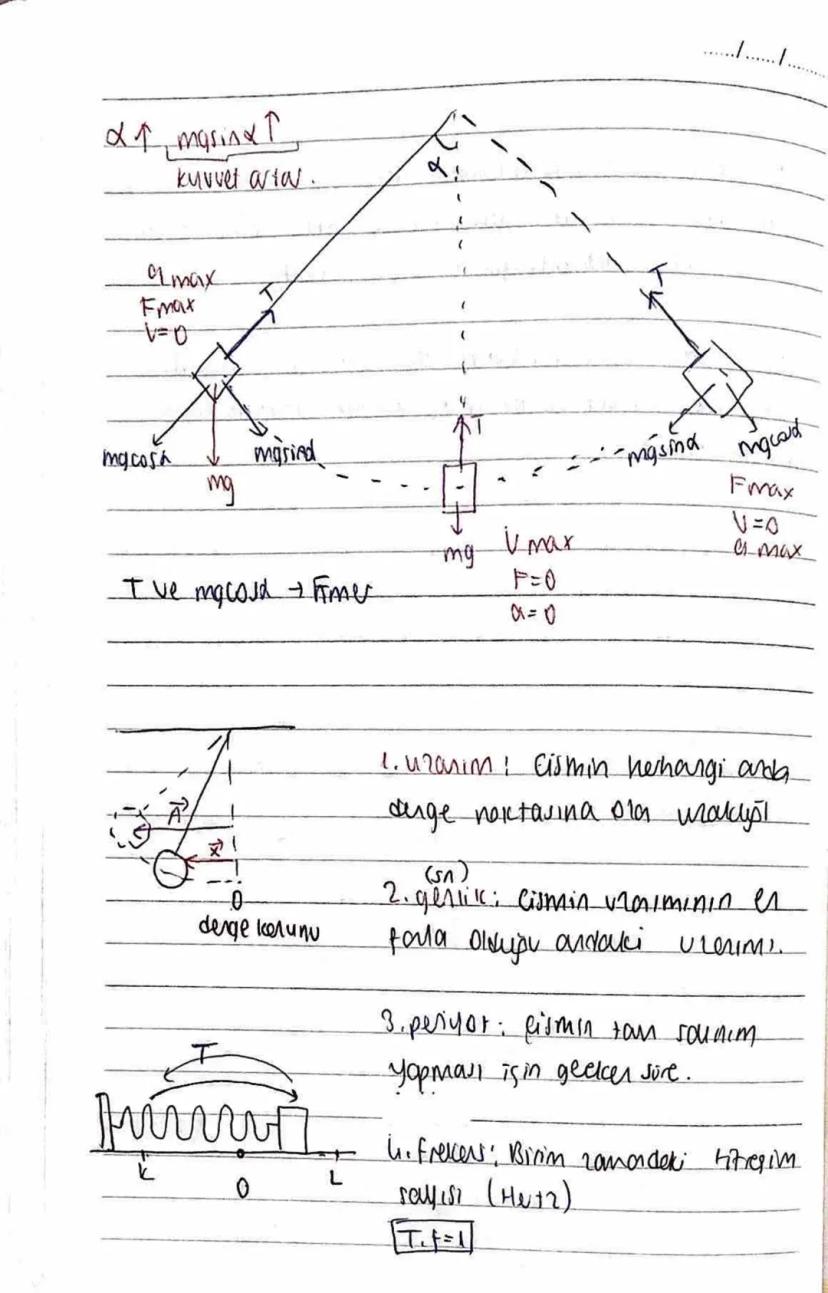 ...../...../.....
α↑ mgsinα↑
kuvvet artar.
α
amax
Fmax
V=0
T
T
mgcosα
mg
mgsinα
T
mg
mgsinα
mgcosα
Fmax
V=0
amax
Vmax
F=0
a=0
T ve mgcosα →
A
x
O
denge konumu
1. uzanım: Cismin herhangi anda
denge noktasına olan uzaklığı
2. genlik: Cismin uzanımının en
fazla olduğu andaki uzanımı.
3. periyot: Cismin tam salınım
yapması için geçen süre.
T
K
O
L
4. frekans: Birim zamandaki titreşim
sayısı (Hertz)
T.f=1